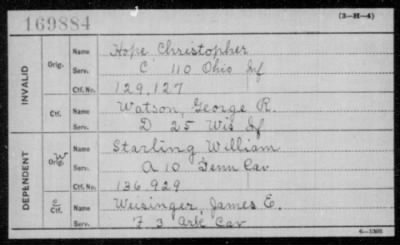 169884
(3-H-4)
INVALID
Orig.
Name Hope Christopher
Serv. C 110 Ohio Inf
Ctf. No. 129,127
Ctf.
Name Watson, George R.
Serv. D 25 Wis Inf
DEPENDENT
W
Orig.
Name Starling William
Serv. A 10 Tenn Cav
Ctf. No. 136,929
C
Ctf.
Name Weisinger, James E.
Serv. F 3 Ark Cav